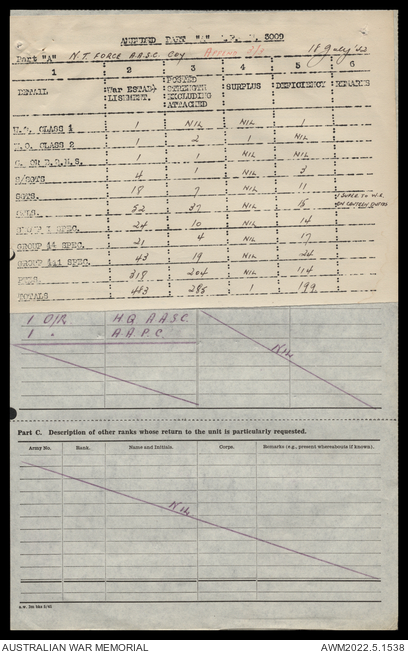 AMENDED PART "A" 3009
Part "A" N.T. FORCE A.A.S.C. Coy 18 July
1 2 3 4 5 6
DETAIL WAR ESTAB- LISHMENT. POSTED STRENGTH EXCLUDING ATTACHED SURPLUS DEFICIENCY REMARKS
W.O. CLASS 1 1 NIL NIL 1
W.O. CLASS 2 1 2 1 NIL
1 1 NIL NIL
S/SGTS 4 1 NIL 3
SGTS. 18 7 NIL 11
CPLS. 52 37 NIL 15
GROUP I SPEC. 24 10 NIL 14
GROUP 11 SPEC. 21 4 NIL 17
GROUP 111 SPEC. 43 19 NIL 24
PTES. 318 204 NIL 114
TOTALS 483 285 1 199
1 O/R HQ A.A.S.C.
1 " A.A.P.C.
Nil
Part C. Description of other ranks whose return to the unit is particularly requested.
Army No. Rank. Name and Initials. Corps. Remarks (e.g., present whereabouts if known).
Nil
AUSTRALIAN WAR MEMORIAL AWM2022.5.1538